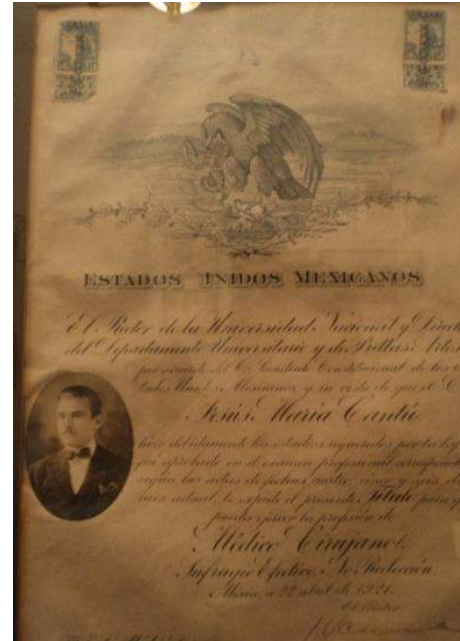 ESTADOS UNIDOS MEXICANOS
El Rector de la Universidad Nacional y
del Departamento Universitario y de Bellas Artes
por acuerdo del C. Presidente Constitucional de los
Mexicanos, y en vista de que el C.
Jesús María Cantú
hizo debidamente los estudios requeridos por la ley
fué aprobado en el examen profesional
según las actas de fechas cuatro, cinco y seis
actual, le expide el presente Título para
pueda ejercer la profesión de
Médico Cirujano.
Sufragio Efectivo. No Reelección.
México, a 22 abril de 1921.
El Rector